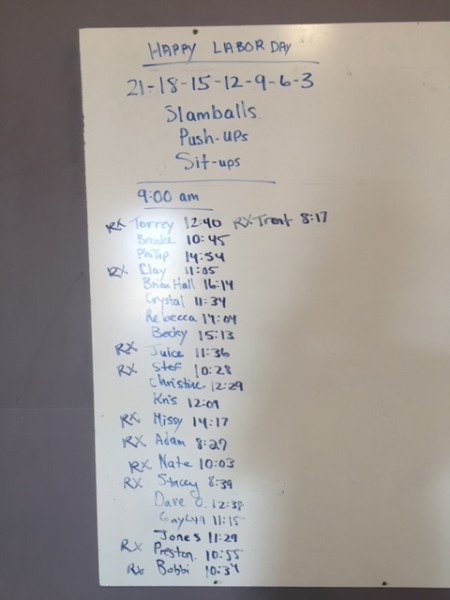 HAPPY LABOR DAY
21-18-15-12-9-6-3
Slamballs
Push-ups
Sit-ups
9:00 am
RX Torrey 12:40 RX Trent 8:17
Brooke 10:45
Phillip 14:54
RX Clay 11:05
Brian Hall 16:14
Crystal 11:34
Rebecca 14:04
Becky 15:13
RX Juice 11:36
RX Stef 10:28
Christine 12:29
Kris 12:09
RX Missy 14:17
RX Adam 8:27
RX Nate 10:03
RX Stacey 8:39
Dave O. 12:38
11:15
Jones 11:29
RX Preston 10:55
RX Bobbi 10:34